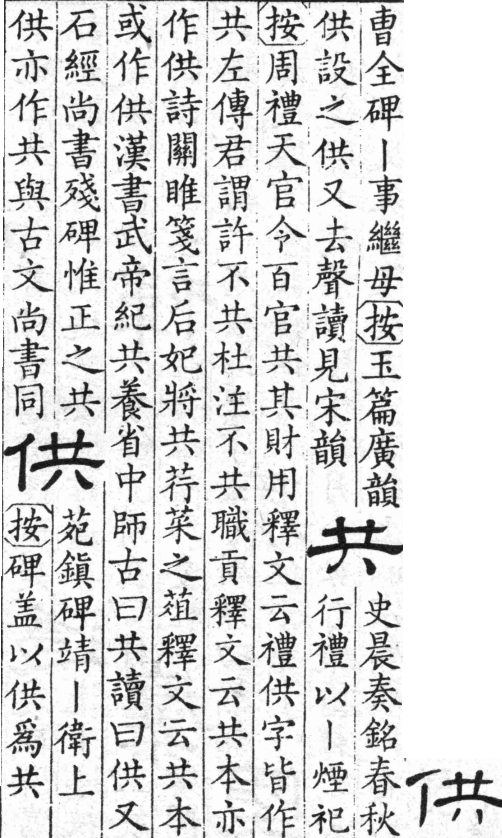 供
曹全碑丨事繼母按玉篇廣韻
供設之供又去聲讀見宋韻
共
史晨奏銘春秋
行禮以丨煙祀
按周禮天官令百官共其財用釋文云禮供字皆作
共左傳君謂許不共杜注不共職貢釋文云共本亦
作供詩關雎箋言后妃將共荇菜之葅釋文云共本
或作供漢書武帝紀共養省中師古曰共讀曰供又
石經尚書殘碑惟正之共
供亦作共與古文尚書同
供
苑鎮碑靖丨衛上
按碑盖以供爲共